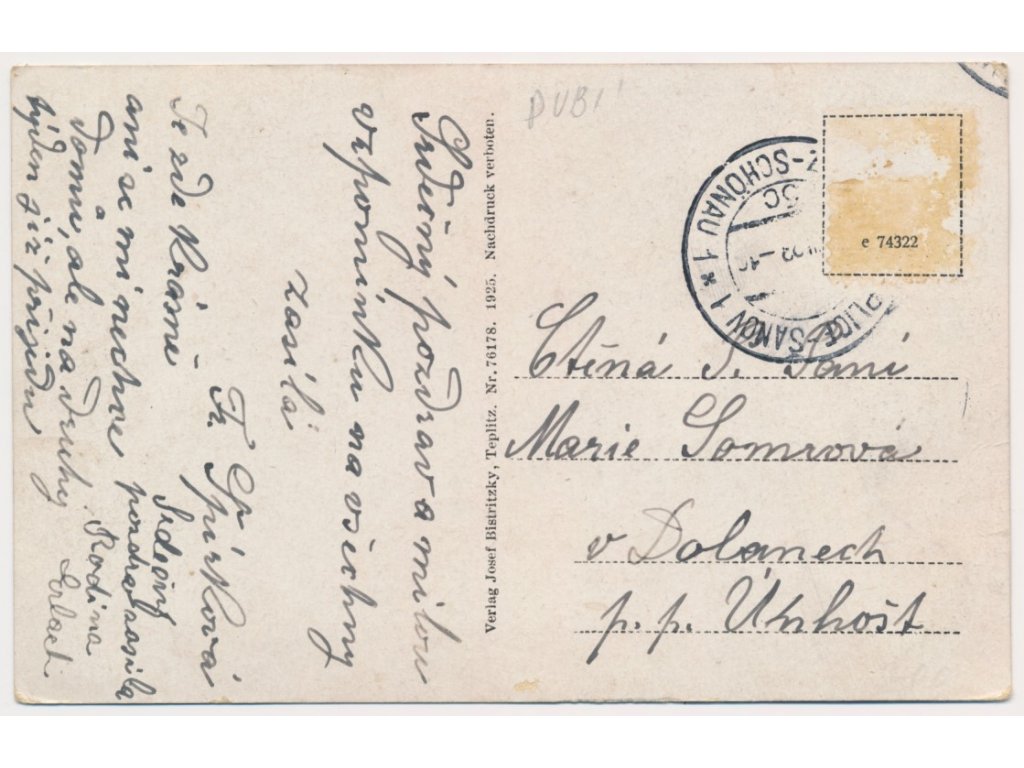 DUBI
Srdečný pozdrav a milou
vzpomínku na všechny
zasílá
Fr. Špírková
Je zde krásně
ani se mi nechce
a
domů, ale na druhej
týden již přijedu
Srdečný
pozdrav zasíla
Rodina
Verlag Josef Bistritzky, Teplitz. Nr. 76178. 1925. Nachdruck verboten.
Z-SCHÖNAU 1 * PLICE-ŠANOV 1
3c
e 74322
Ctěná S. Paní
Marie Somrová
v Dolanech
p. p. Únhošt